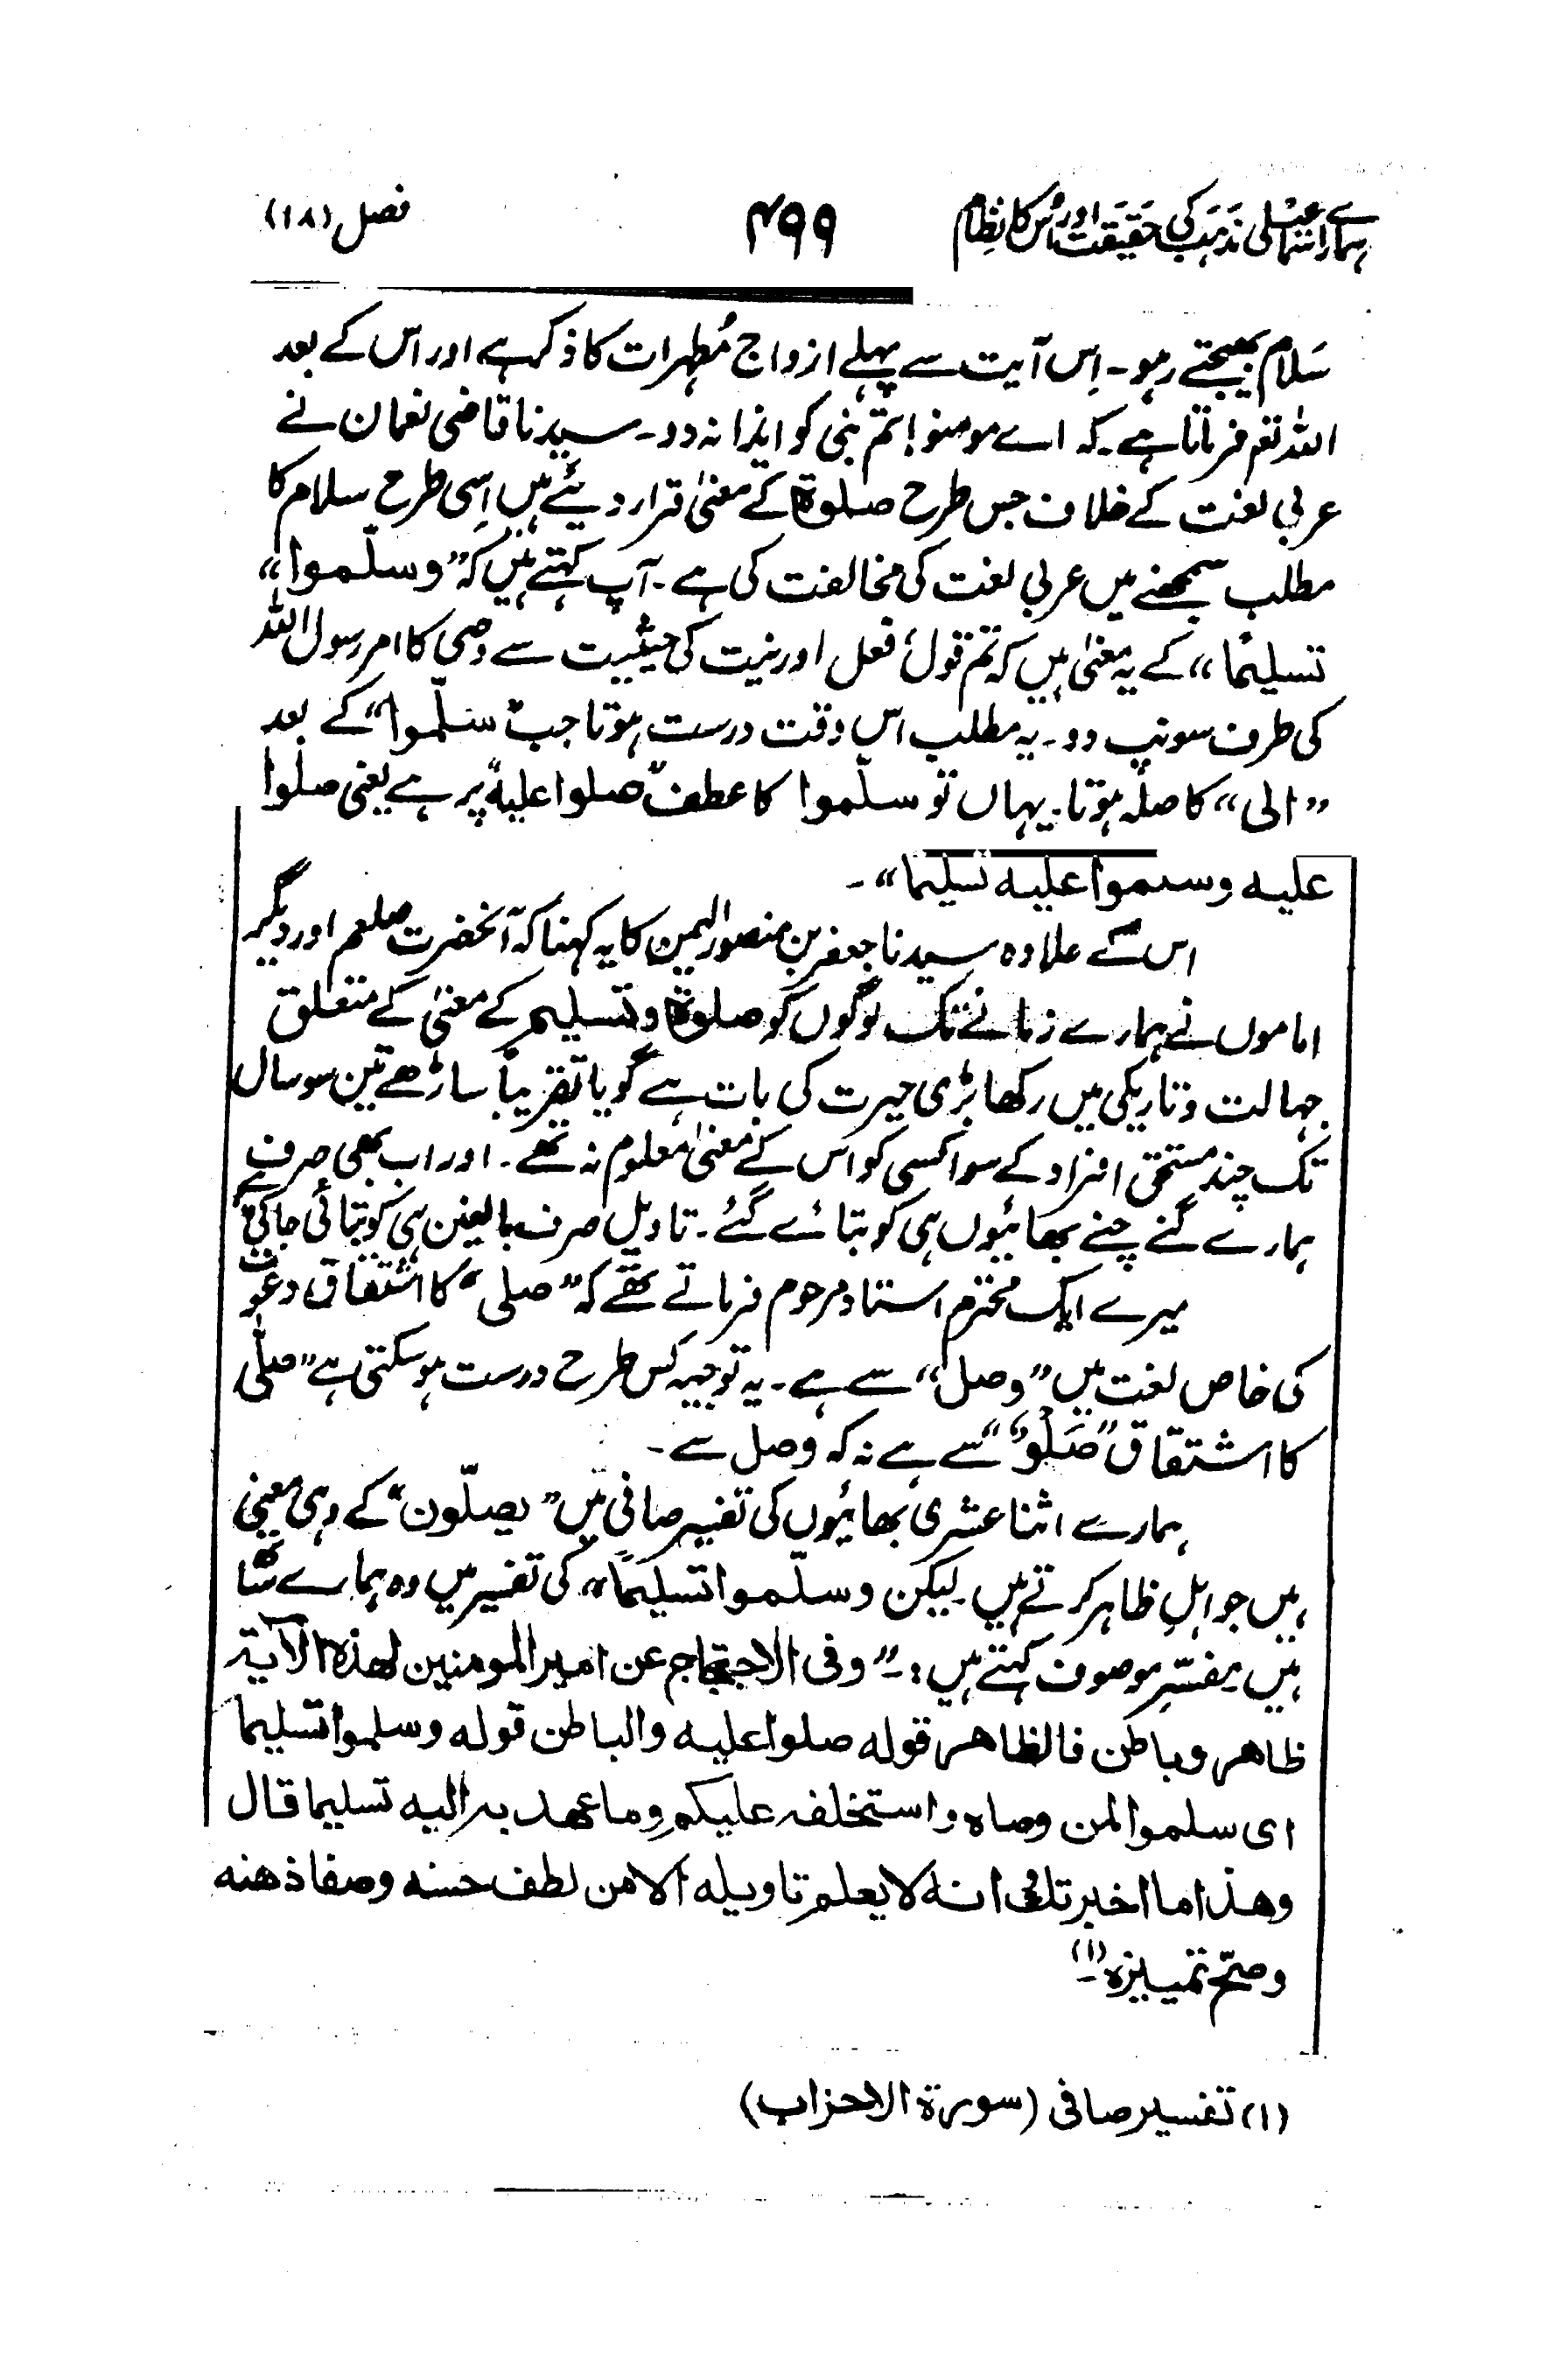 ہمارے اسماعیلی مذہب کی حقیقت اور اُس کا نظام
۴۹۹
فصل (۱۸)
سَلام بھیجتے رہو۔ اِس آیت سے پہلے ازواج مُطہرات کا ذکر ہے اور اس کے بعد
اللہ تعم فرماتا ہے۔ کہ اے مومنو! تم نبی کو ایذا نہ دو۔ سیدنا قاضی نعمان نے
عربی لغت کے خلاف جس طرح صلوۃ کے معنیٰ قرار دیئے ہیں اِسی طرح سلام کا
مطلب سمجھنے میں عربی لغت کی مخالفت کی ہے۔ آپ کہتے ہیں کہ ”وسلّموا“
تسلیمًا“ کے یہ معنیٰ ہیں کہ تم قول، فعل اور نیت کی حیثیت سے وصی کا امر رسول اللہ
کی طرف سونپ دو۔ یہ مطلب اس وقت درست ہوتا جب ”سَلّموا“ کے بعد
”الی“ کا صلہ ہوتا۔ یہاں تو سلّموا کا عطف ”صلوا علیہ“ پر ہے یعنی صلوا
علیہ وسلموا علیہ تسلیما“۔
اس کے علاوہ سیدنا جعفر بن منصور الیمن کا یہ کہنا کہ آنحضرت صلعم اور دیگر
اماموں نے ہمارے زمانے تک لوگوں کو صلوۃ و تسلیم کے معنیٰ کے متعلق
جہالت و تاریکی میں رکھا بڑی حیرت کی بات ہے گویا تقریباً ساڑھے تین سو سال
تک چند مستحق افراد کے سوا کسی کو اس کے معنیٰ معلوم نہ تھے۔ اور اب بھی صرف
ہمارے گنے چنے بھائیوں ہی کو بتائے گئے۔ تاویل صرف بالغین ہی کو بتائی جاتی ہے
میرے ایک محترم استاد مرحوم فرماتے تھے کہ ”صلی“ کا اشتقاق دعوت
کی خاص لغت میں ”وصل“ سے ہے۔ یہ توجیہ کس طرح درست ہو سکتی ہے ”صلّی
کا اشتقاق ”صَلْو“ سے ہے نہ کہ وصل سے۔
ہمارے اثنا عشری بھائیوں کی تفسیر صافی میں ”یصلّون“ کے وہی معنی
ہیں جو اہلِ ظاہر کرتے ہیں۔ لیکن وسلّموا تسلیمًا“ کی تفسیر میں وہ ہمارے ساتھ
ہیں مفسّرِ موصوف کہتے ہیں :۔ ”وفی الاحتجاج عن امیر المومنین لهذه الآیة
ظاهر وباطن فالظاهر قوله صلوا علیه والباطن قوله وسلموا تسلیما
ای سلموا لمن وصاه واستخلفه علیکم وما عهد به الیه تسلیما قال
وهذا ما اخبرتك انه لا یعلم تاویله الا من لطف حسه وصفا ذهنه
وصحّ تمییزه (۱)۔
(۱) تفسیر صافی (سورة الاحزاب)